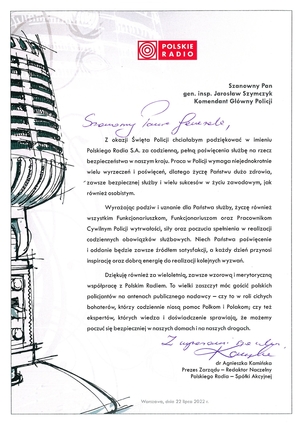 POLSKIE
RADIO
Szanowny Pan
gen. insp. Jarosław Szymczyk
Komendant Główny Policji
Szanowny Panie Generale,
Z okazji Święta Policji chciałabym podziękować w imieniu
Polskiego Radia S.A. za codzienną, pełną poświęcenia służbę na rzecz
bezpieczeństwa w naszym kraju. Praca w Policji wymaga niejednokrotnie
wielu wyrzeczeń i poświęceń, dlatego życzę Państwu dużo zdrowia,
zawsze bezpiecznej służby i wielu sukcesów w życiu zawodowym, jak
również osobistym.
Wyrażając podziw i uznanie dla Państwa służby, życzę również
wszystkim Funkcjonariuszkom, Funkcjonariuszom oraz Pracownikom
Cywilnym Policji wytrwałości, siły oraz poczucia spełnienia w realizacji
codziennych obowiązków służbowych. Niech Państwa poświęcenie
i oddanie będzie zawsze źródłem satysfakcji, a każdy dzień przynosi
inspirację oraz dobrą energię do realizacji kolejnych wyzwań.
Dziękuję również za wieloletnią, zawsze wzorową i merytoryczną
współpracę z Polskim Radiem. To wielki zaszczyt móc gościć polskich
policjantów na antenach publicznego nadawcy – czy to w roli cichych
bohaterów, którzy codziennie niosą pomoc Polkom i Polakom; czy też
ekspertów, których wiedza i doświadczenie sprawiają, że możemy
poczuć się bezpieczniej w naszych domach i na naszych drogach.
Z wyrazami
dr Agnieszka Kamińska
Prezes Zarządu – Redaktor Naczelny
Polskiego Radia – Spółki Akcyjnej
Warszawa, dnia 22 lipca 2022 r.